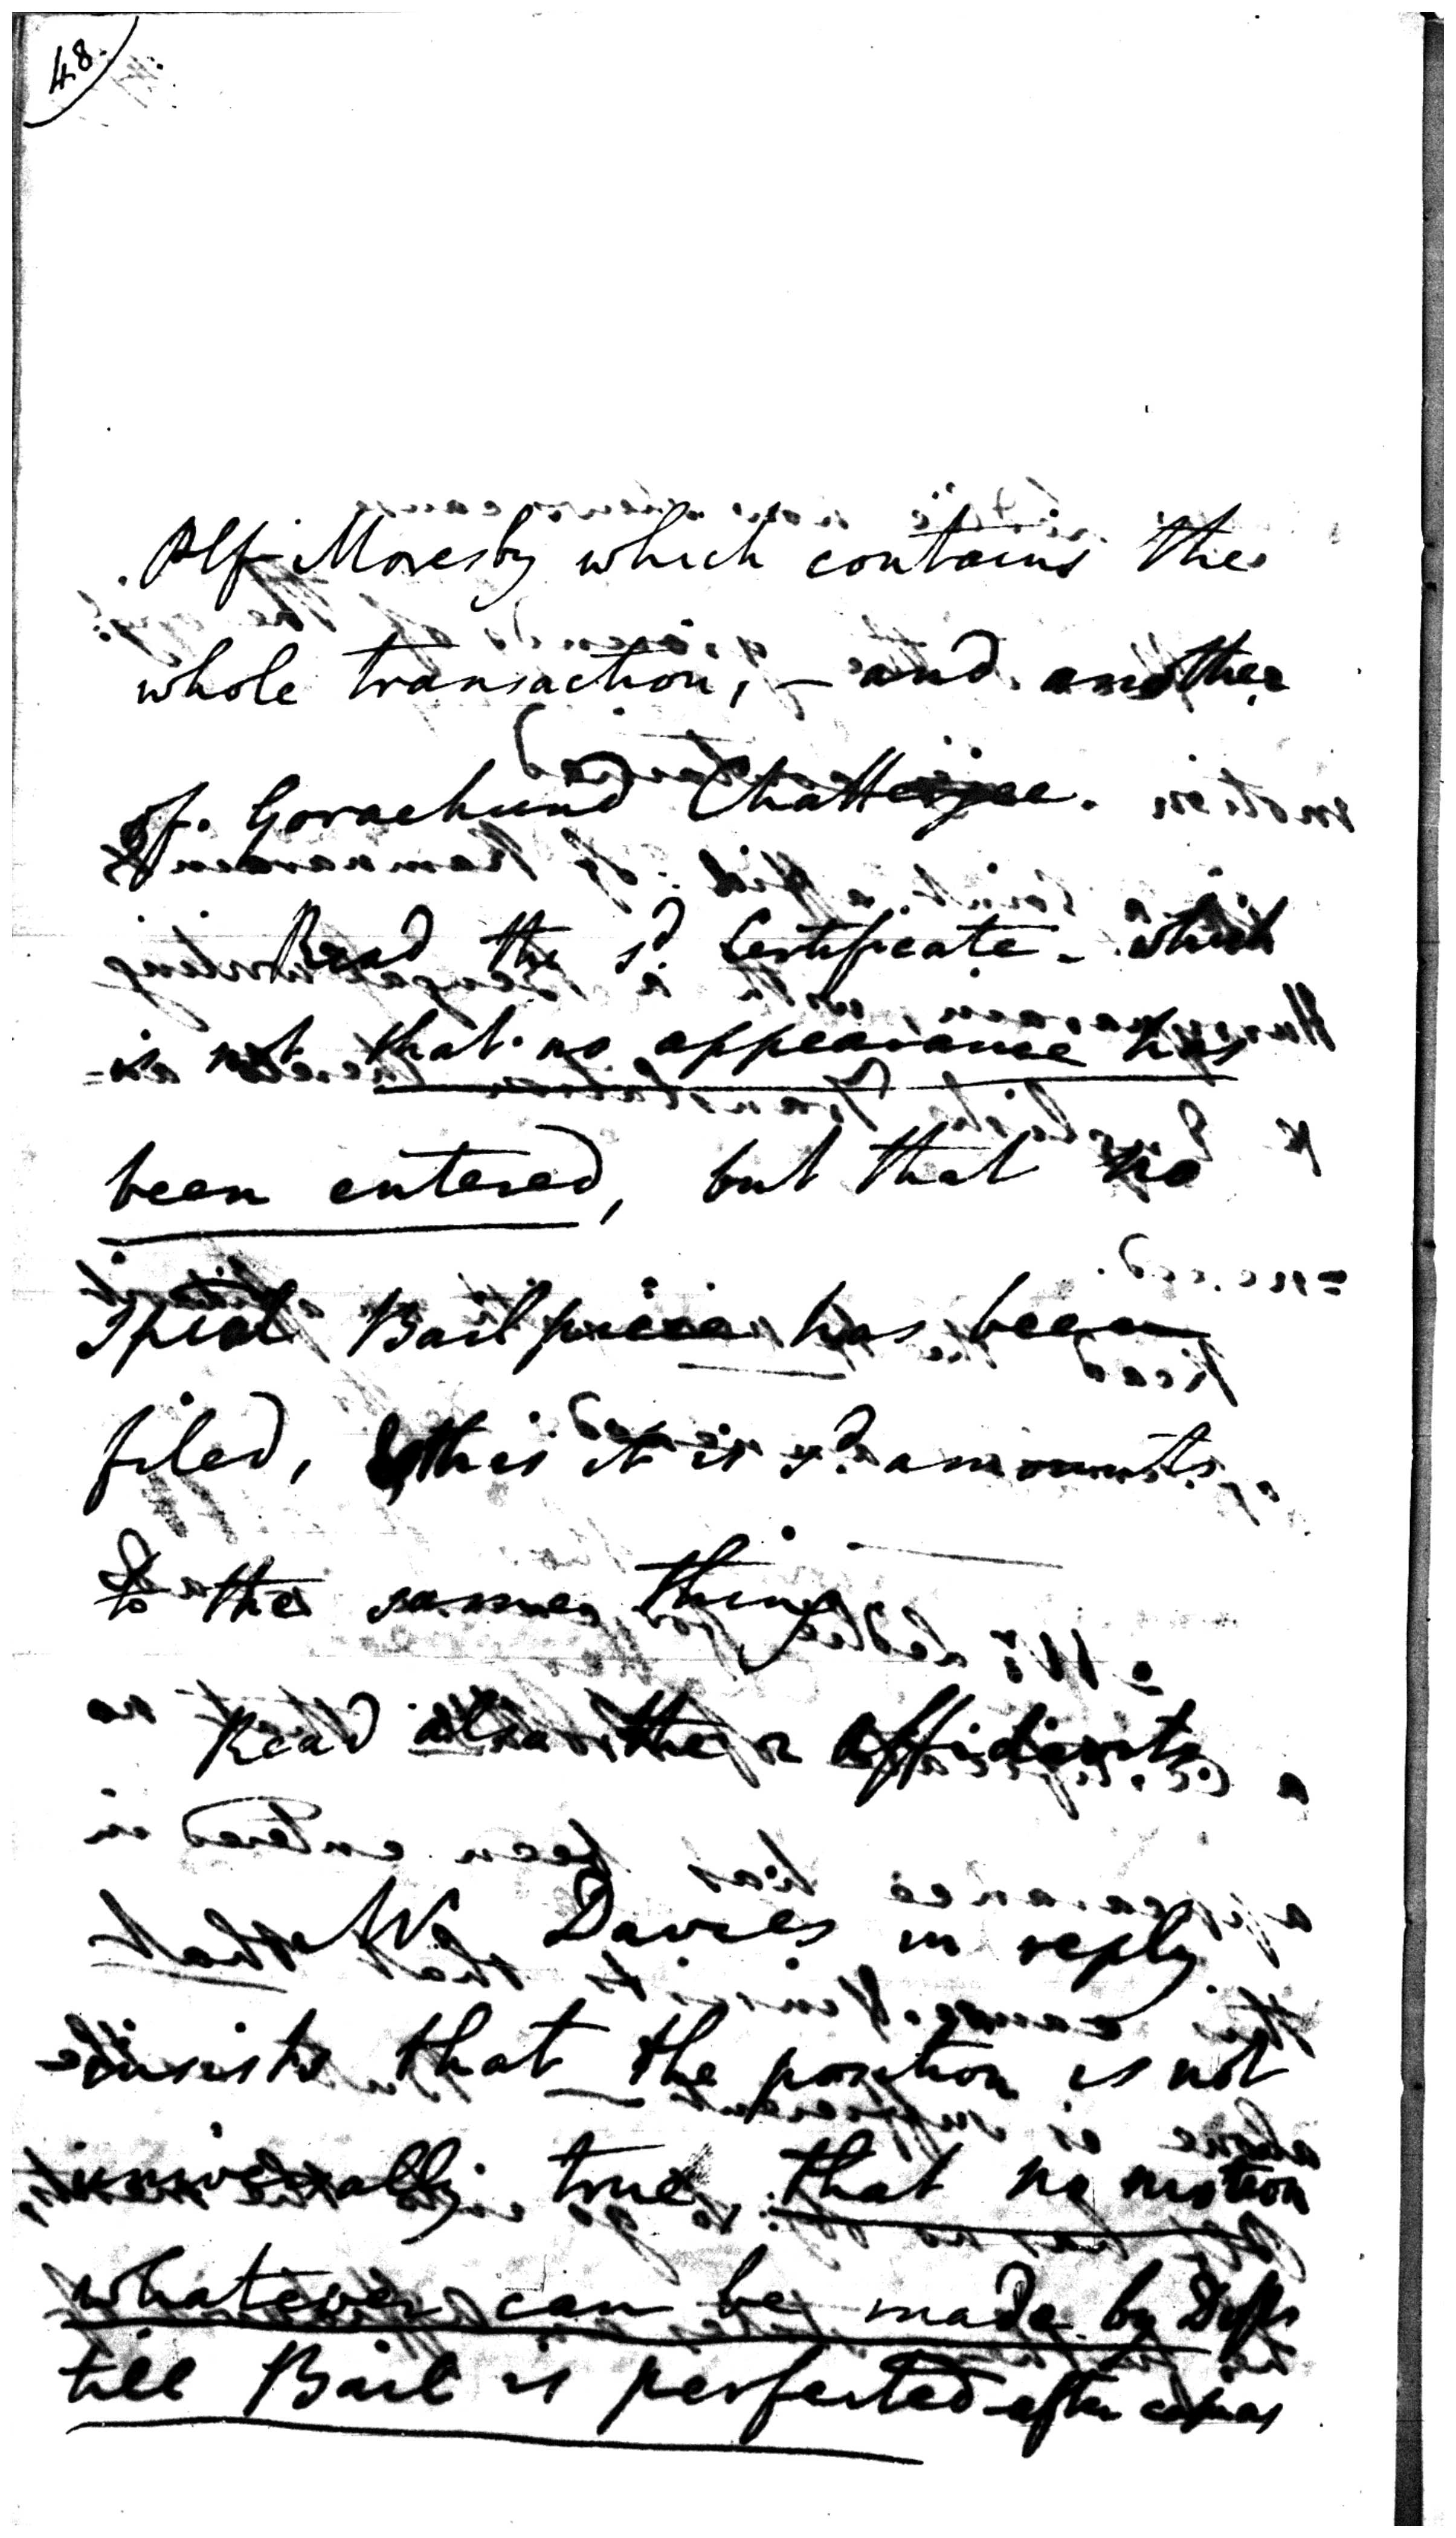 48.
Plf Moresby which contains the
whole transaction, – and another
of Gorachund Chatterjee.
Read the sd. Certificate – which
is not that no appearance has
been entered, but that no
Special Bailpiece has been
filed, & this it is sd. amounts
to the same thing
Read also the 2 affidavits
Mr Davies in reply
insists that the position is not
universally true that no motion
whatever can be made by Defts
till Bail is perfected after capias